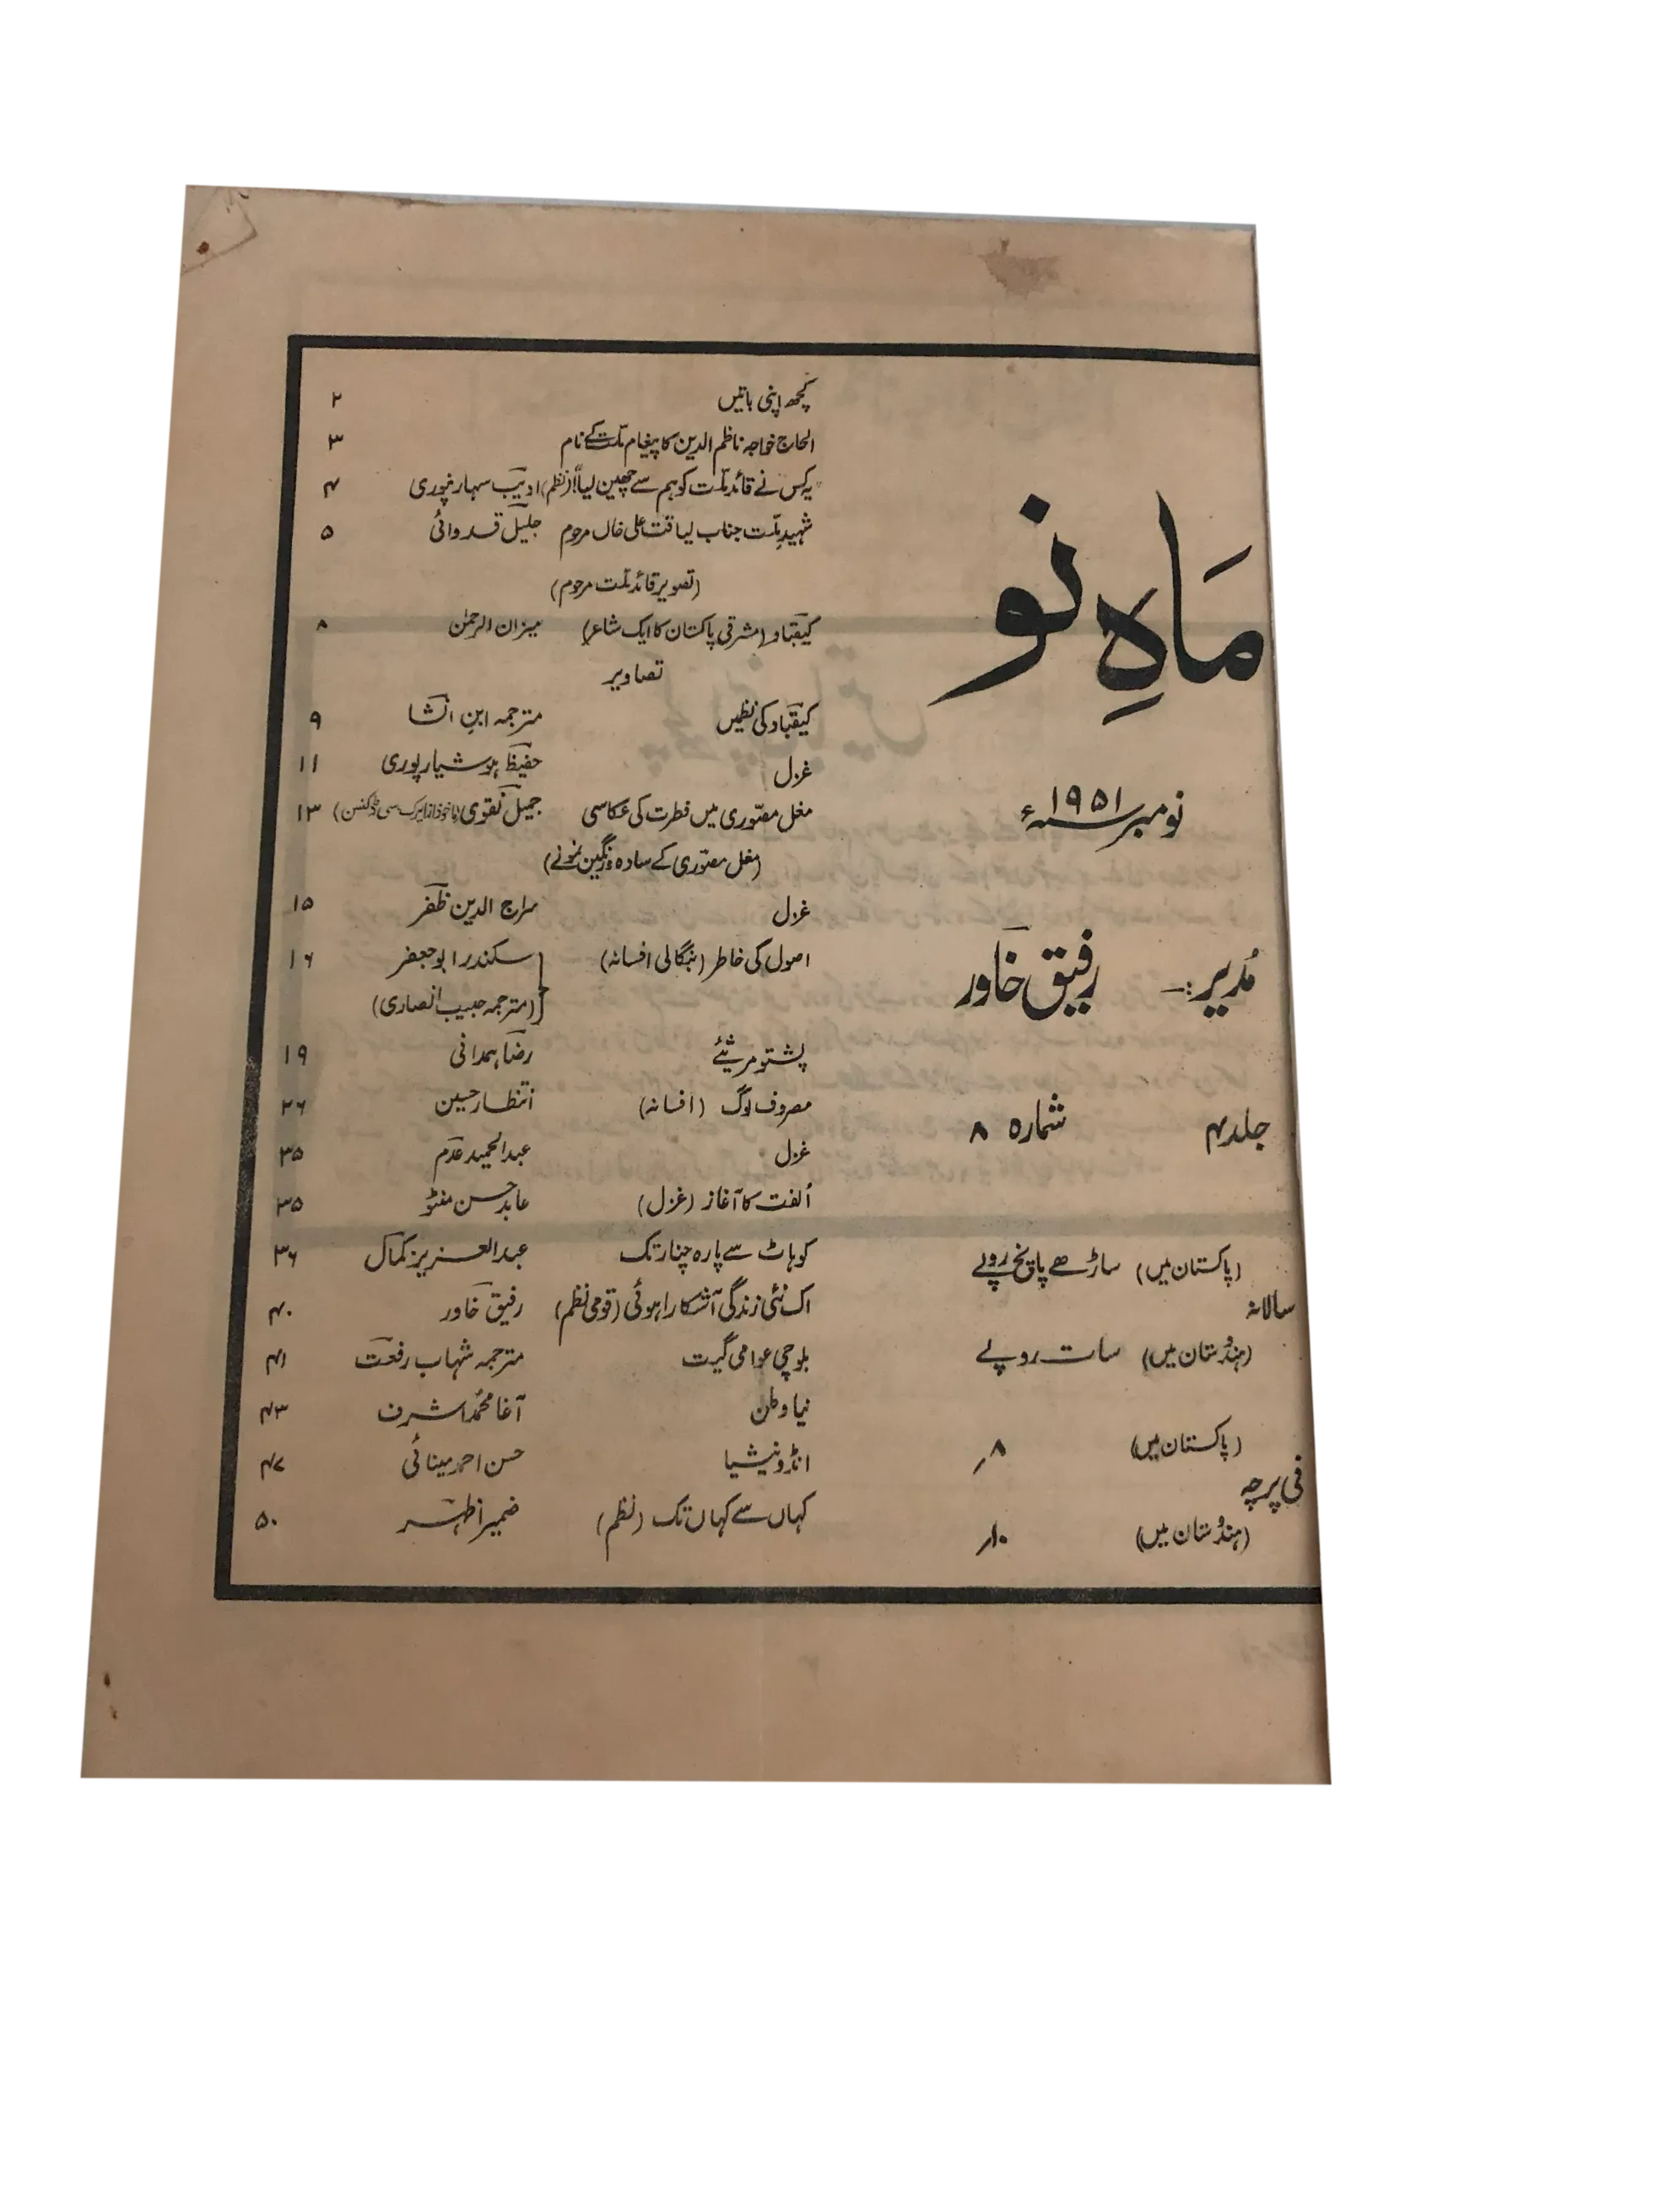 ماہِ نو
نومبر ۱۹۵۱ء
مُدیر:— رفیق خاور
جلد ۴ شمارہ ۸
(پاکستان میں) ساڑھے پانچ روپے
سالانہ
(ہندُوستان میں) سات روپے
(پاکستان میں) ۸؍
فی پرچہ
(ہندُوستان میں) ۱۰؍
کچھ اپنی باتیں ۲
الحاج خواجہ ناظم الدین کا پیغام ملّت کے نام ۳
"یہ کس نے قائد ملّت کو ہم سے چھین لیا"! (نظم) ادیب سہارنپوری ۴
شہیدِ ملّت جناب لیاقت علی خاں مرحوم جلیل قدوائی ۵
(تصویر قائد ملّت مرحوم)
کیقباد (مشرقی پاکستان کا ایک شاعر) میزان الرحمٰن ۸
تصاویر
کیقباد کی نظمیں مترجمہ ابنِ انشا ۹
غزل حفیظ ہوشیارپوری ۱۱
مغل مصّوری میں فطرت کی عکاسی جمیل نقوی (ماخوذ از ایرک سی ڈکنسن) ۱۳
(مغل مصّوری کے سادہ و رنگین نمونے)
غزل سراج الدین ظفر ۱۵
اصول کی خاطر (بنگالی افسانہ) سکندر ابو جعفر ۱۶
(مترجمہ حبیب انصاری)
پشتو مرثیئے رضا ہمدانی ۱۹
مصروف لوگ (افسانہ) انتظار حسین ۲۶
غزل عبدالحمید عدم ۳۵
اُلفت کا آغاز (غزل) عابد حسن منٹو ۳۵
کوہاٹ سے پارہ چنار تک عبدالعزیز کمال ۳۶
اک نئی زندگی آشکارا ہوئی (قومی نظم) رفیق خاور ۴۰
بلوچی عوامی گیت مترجمہ شہاب رفعت ۴۱
نیا وطن آغا محمد اشرف ۴۳
انڈونیشیا حسن احمد مینائی ۴۷
کہاں سے کہاں تک (نظم) ضمیر اظہر ۵۰